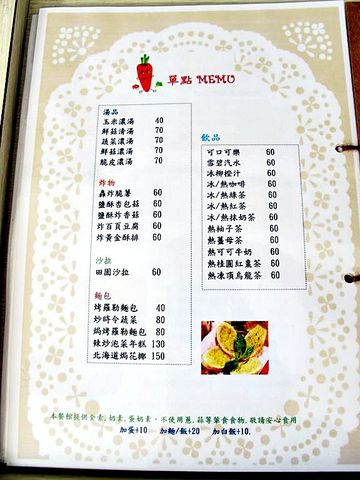 單點 MEMU
湯品
玉米濃湯 40
鮮菇清湯 70
蔬菜濃湯 70
鮮菇濃湯 70
脆皮濃湯 70
炸物
轟炸脆薯 60
鹽酥杏包菇 60
鹽酥炸香菇 60
炸百頁豆腐 60
炸黃金酥排 60
沙拉
田園沙拉 60
麵包
烤羅勒麵包 40
炒時令蔬菜 80
焗烤羅勒麵包 80
辣炒泡菜年糕 130
北海道焗花椰 150
飲品
可口可樂 60
雪碧汽水 60
冰柳橙汁 60
冰/熱咖啡 60
冰/熱綠茶 60
冰/熱紅茶 60
冰/熱抹奶茶 60
熱柚子茶 60
熱薑母茶 60
熱可可牛奶 60
熱桂圓紅棗茶 60
熱凍頂烏龍茶 60
本餐館提供全素, 奶素, 蛋奶素, 不使用蔥, 蒜等葷食食物, 敬請安心食用
加蛋+10 加麵/飯+20 加白飯+10.